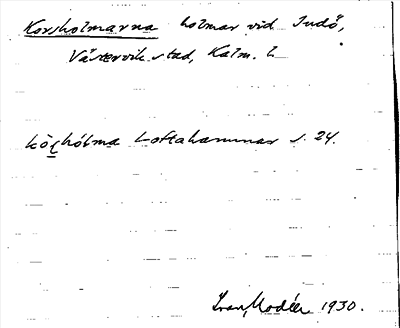 Korsholmarna holmar vid Indö,
Västervik stad, Kalm. l.
Loftahammar s. 24.
Ivar Modéer 1930.